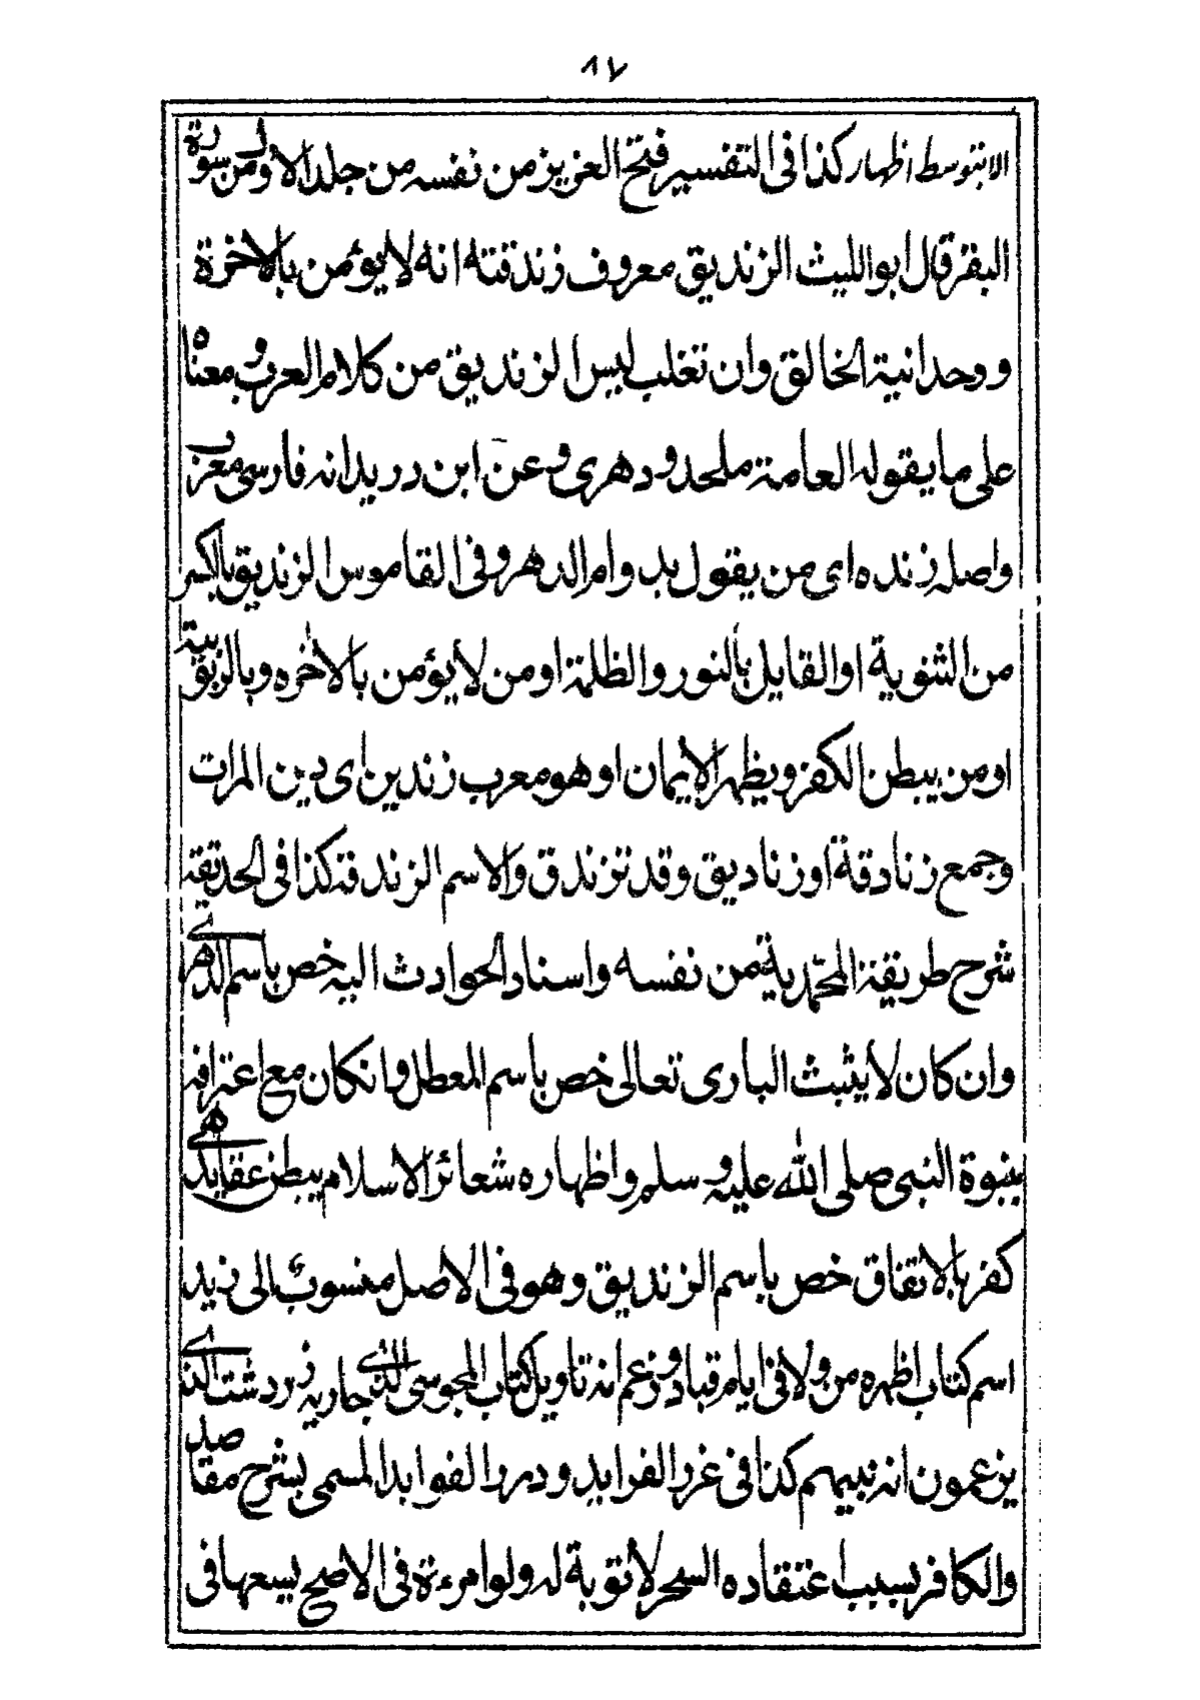 ٨٧
الابتوسط اظهار كذا فى التفسير فتح العزيز من نفسه من جلد الاول من سورة
البقر قال ابو الليث الزنديق معروف زندقته انه لا يؤمن بالاخرة
ووحدانية الخالق وان تغلب ليس الزنديق من كلام العرب ومعناه
على ما يقوله العامة ملحد ودهرى وعن ابن دريد انه فارسى معرب
واصله زنده اى من يقول بدوام الدهر وفى القاموس الزنديق بالكسر
من الثنوية او القايل بالنور والظلمة او من لا يؤمن بالاخره وبالربوبية
او من يبطن الكفر ويظهر الايمان او هو معرب زندين اى دين المرات
وجمع زنادقة او زناديق وقد تزندق والاسم الزندقة كذا فى الحديقة
شرح طريقة المحمدية من نفسه واسناد الحوادث اليه خص باسم الدهرى
وان كان لا يثبت البارى تعالى خص باسم المعطل وانكان مع اعترافه
بنبوة النبى صلى الله عليه وسلم واظهاره شعائر الاسلام يبطن عقايد هى
كفر بالاتفاق خص باسم الزنديق وهو فى الاصل منسوب الى زند
اسم كتاب اظهره من ولا فى ايام قباد وزعم انه تاويل كتاب المجوسى الذى جاربه زردشت الذى
يزعمون انه نبيهم كذا فى غرر الفرايد ودرر الفوايد المسمى بشرح مقاصد
والكافر بسبب اعتقاده السحر لا توبة له ولو امرءة فى الاصح يسعها فى